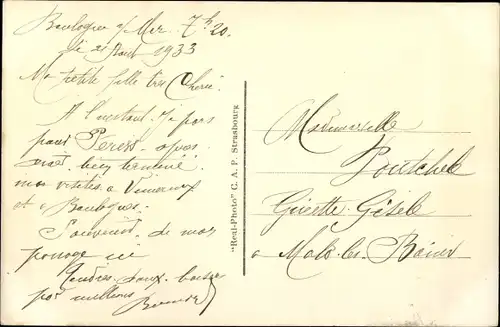 Boulogne s/ Mer. 7h 20.
le 21 Aout 1933
Ma petite fille très Chérie
A l'instant. je pars
pour
avoir bien terminé
mes visites a Wimereux
et a Boulogne.
Souvenir de mon
passage
Tendres doux baisers
par millions
"Real-Photo" C. A. P. Strasbourg
Mademoiselle
Ginette Gisèle
a Malo les Bains